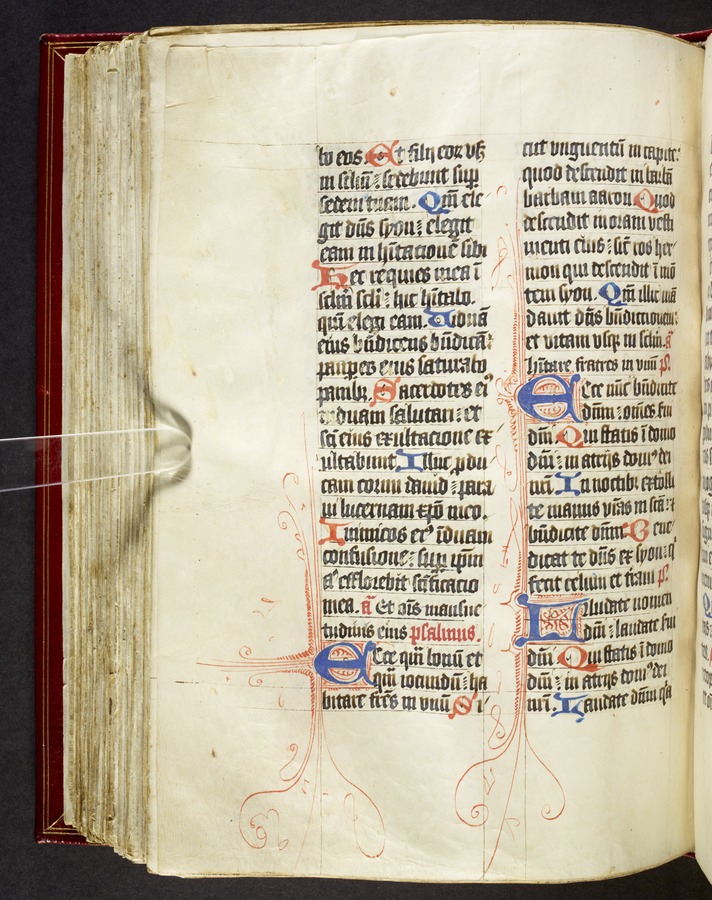 bo eos. Et filij eoꝝ vsqꝫ
in sclm̄ : sedebunt sup̱
sedem tuam. Qm̄ ele
git dn̄s syon : elegit
eam in hītacionē sibi
Hec requies mea ī
sclm̄ scl̄i : hic hītabo.
qm̄ elegi eam. Viduā
eius bn̄dicens bn̄dicā :
pauꝑes eius saturabo
panibꝫ. Sacerdotes ei᷒
induam salutari : et
sc̄i eius exultacione ex
ultabunt. Illuc ꝓdu
cam cornu dauid : para
ui lucernam xp̄o meo.
Inimicos ei᷒ īduam
confusione : sup̱ ip̄m
aū efflorebit sc̄ificacio
mea. a᷒ Et oīs mansue
tudinis eius psalmus.
Ecce qm̄ bonū et
qm̄ iocundū : ha
bitare fr̄es in vnū Si
cut vnguentū in capite :
quod descendit in barbā
barbam aaron Quod
descendit in oram vesti
menti eius : sic̄ ros her
mon qui descendit ī mō
tem syon. Qm̄ illic mā
dauit dn̄s bn̄dictionem :
et vitam vsqꝫ in sclm̄. a᷒
hītare fratres in vnū p̄s.
Ecce nūc bn̄dicite
dn̄m : om̄es s̄ui
dn̄i Qui statis ī domo
dn̄i : in atrijs dom᷒ dei
nr̄i. In noctibꝫ extolli
te manus vr̄as in sc̄ā : et
bn̄dicite dn̄m Bene
dicat te dn̄s ex syon : q̇
fecit celum et t̄ram p̄s.
Laudate nomen
dn̄i : laudate s̄ui
dn̄i Qui statis ī domo
dn̄i : in atrijs dom᷒ dei
nr̄i. Laudate dn̄m qa